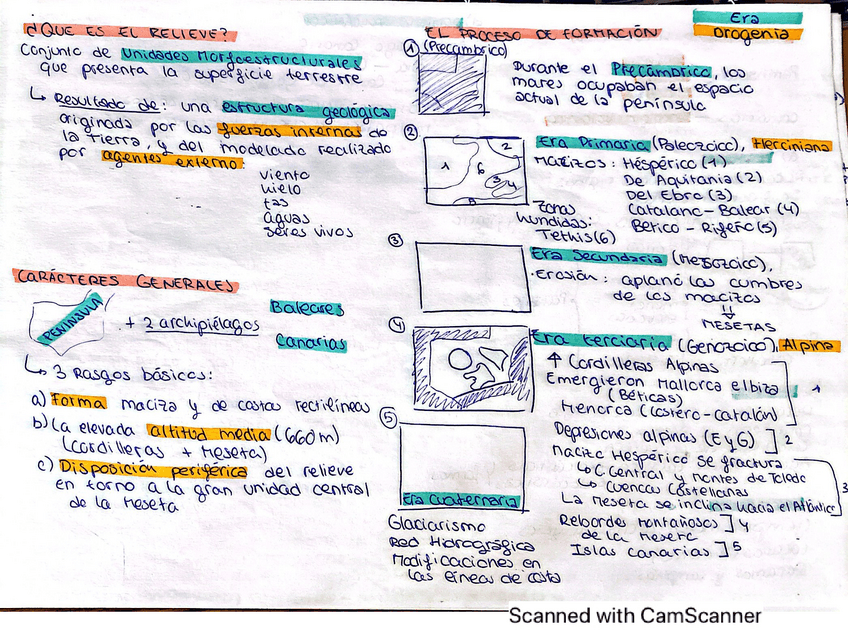 ¿QUE ES EL RELIEVE?
Conjunto de unidades Morfoestructurales
que presenta la superficie terrestre
↳ Resultado de: una estructura geológica
originada por las fuerzas internas de
la Tierra, y del modelado realizado
por agentes externo:
viento
hielo
aguas
seres vivos
CARÁCTERES GENERALES
PENÍNSULA
+ 2 archipiélagos
Baleares
Canarias
↳ 3 Rasgos básicos:
a) Forma maciza y de costas rectilíneas
b) La elevada altitud media (660m)
(cordilleras + Meseta)
c) Disposición periférica del relieve
en torno a la gran unidad central
de la Meseta
Era
Orogenia
EL PROCESO DE FORMACIÓN
① (Precámbrico)
Durante el Precámbrico, los
mares ocupaban el espacio
actual de la península
②
1 2 6 3 4 5
Era Primaria (Paleozoico), Herciniana
Macizos: Héspérico (1)
De Aquitania (2)
Del Ebro (3)
Catalano-Balear (4)
Bético-Rifeño (5)
Zonas
hundidas:
Tethis (6)
③
Era Secundaria (Mesozoico),
·Erosión: aplanó las cumbres
de los macizos
⇓
MESETAS
④
Era terciaria (Cenozoico), Alpina
↑ Cordilleras Alpinas
Emergieron Mallorca e Ibiza
(Béticas)
Menorca (Costero-catalán)
1
Depresiones alpinas (E y G) ] 2
Macizo Hespérico se fractura
↳ C. Central y montes de Toledo
↳ Cuencas Castellanas
La Meseta se inclina hacia el Atlántico
3
Rebordes montañosos ] 4
de la meseta
Islas canarias ] 5
⑤
Era Cuaternaria
Glaciarismo
Red Hidrográfica
Modificaciones en
las líneas de costa
Scanned with CamScanner